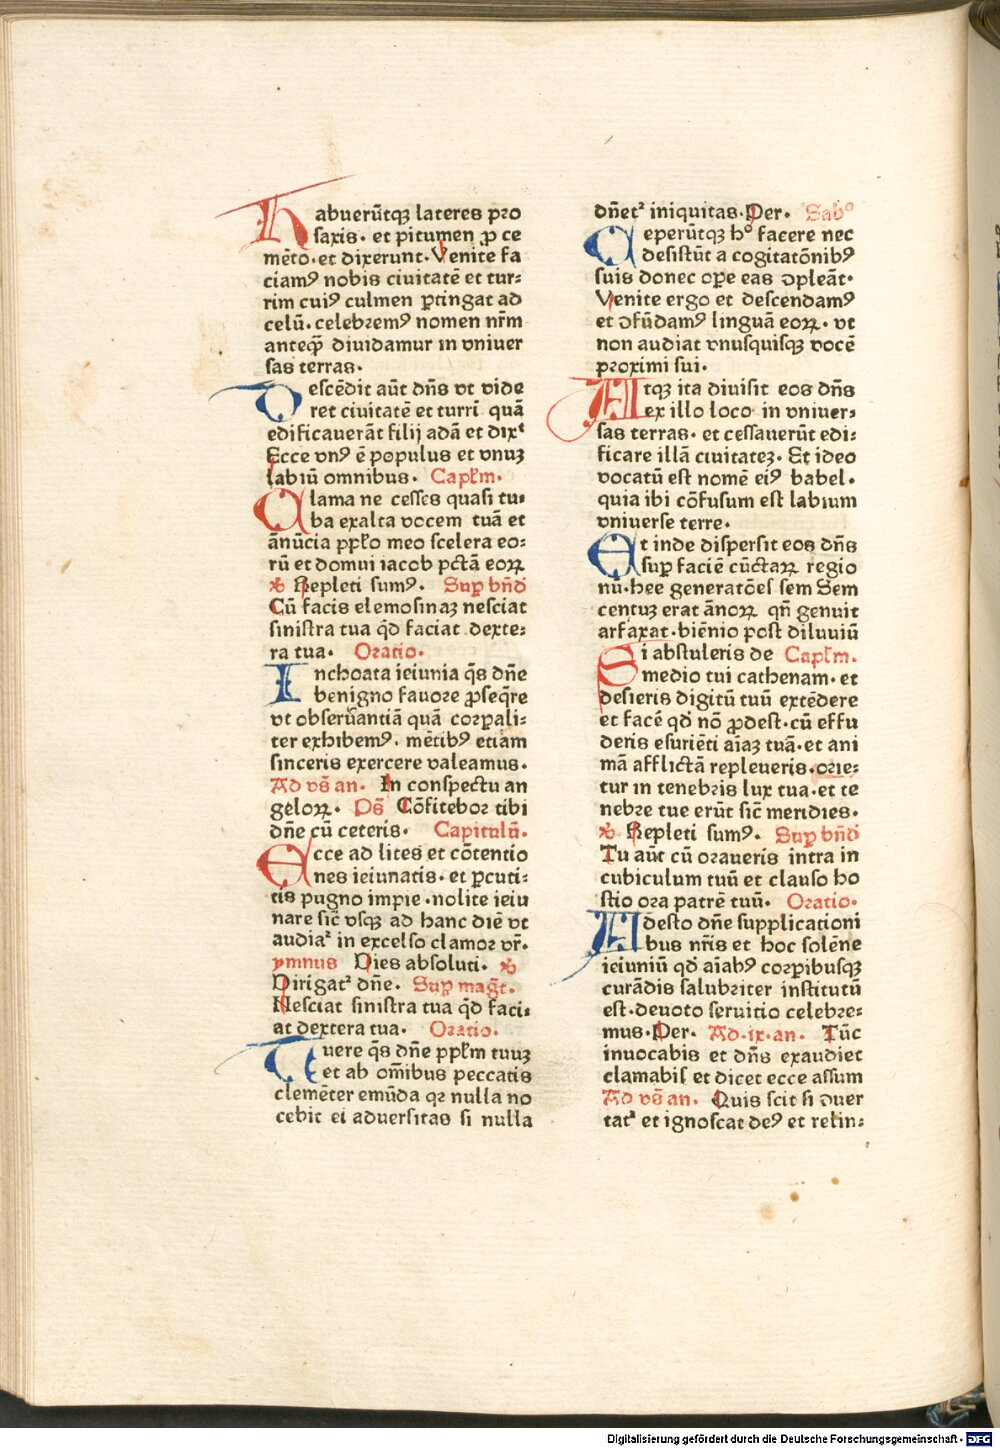 Habuerūtqꝫ lateres pro
saxis· et pitumen ꝓ ce
mēto·et dixerunt·Venite fa
ciamꝰ nobis ciuitatē et tur⸗
rim cuiꝰ culmen ꝑtingat ad
celū·celebremꝰ nomen nr̄m
anteqꝫ̄ diuidamur in vniuer
sas terras·
Descēdit aūt dn̄s vt vide
ret ciuitatē et turrī quā
edificauerāt filij adā et dixᵗ
Ecce vnꝰ ē populus et vnuꝫ
labiū omnibus· Capl̄m·
Clama ne cesses quasi tu⸗
ba exalta vocem tuā et
ānūcia ppl̄o meo scelera eo⸗
rū et domui iacob pctā eoꝝ
℟ Repleti sumꝰ· Suꝑ bn̄d
Cū facis elemosinaꝫ nesciat
sinistra tua qd̄ faciat dexte⸗
ra tua· Oratio·
Inchoata ieiunia qs̄ dn̄e
benigno fauore ꝓseqr̄e
vt obseruantiā quā corꝑali⸗
ter exhibemꝰ· mētibꝰ etiam
sinceris exercere valeamus·
Ad vs̄ an· In conspectu an
geloꝝ· Ps̄ Cōfitebor tibi
dn̄e cū ceteris· Capitulū·
Ecce ad lites et cōtentio
nes ieiunatis· et ꝑcuti⸗
tis pugno impie·nolite ieiu
nare sic̄ vsqꝫ ad hanc diē vt
audiaᵗ in excelso clamor vr̄·
ymnus Dies absoluti· ℟
Dirigatᵗ dn̄e· Suꝑ maḡt·
Nesciat sinistra tua qd̄ faci⸗
at dextera tua· Oratio·
Tuere qs̄ dn̄e ppl̄m tuuꝫ
et ab om̄ibus peccatis
clemēter emūda qꝛ nulla no
cebit ei aduersitas si nulla
dn̄etᵗ iniquitas·Per· Sabᵒ
Ceperūtqꝫ hᵒ facere nec
desistūt a cogitatōnibꝰ
suis donec oꝑe eas ꝯpleāt·
Venite ergo et descendamꝰ
et ꝯfūdamꝰ linguā eoꝝ· vt
non audiat vnusquisqꝫ vocē
proximi sui·
Atqꝫ ita diuisit eos dn̄s
ex illo loco in vniuer⸗
sas terras· et cessauerūt edi⸗
ficare illā ciuitateꝫ· Et ideo
vocatū est nomē eiꝰ babel·
quia ibi cōfusum est labium
vniuerse terre·
Et inde dispersit eos dn̄s
suꝑ faciē cūctaꝝ regio
nū·hee generatōes sem Sem
centuꝫ erat ānoꝝ qn̄ genuit
arfaxat·biēnio post diluuiū
Si abstuleris de Capl̄m·
medio tui cathenam· et
desieris digitū tuū extēdere
et facē qd̄ nō ꝓdest·cū effu
deris esuriēti aīaꝫ tuā·et ani
mā afflictā repleueris·orie⸗
tur in tenebris lux tua·et te
nebre tue erūt sic̄ meridies·
℟ Repleti sumꝰ· Suꝑ bn̄d
Tu aūt cū oraueris intra in
cubiculum tuū et clauso ho
stio ora patrē tuū· Oratio·
Adesto dn̄e supplicationi
bus nr̄is et hoc solēne
ieiuniū qd̄ aīabꝰ corꝑibusqꝫ
curādis salubriter institutū
est·deuoto seruitio celebre⸗
mus·Per· Ad·ix·an· Tūc
inuocabis et dn̄s exaudiet
clamabis et dicet ecce assum
Ad vs̄ an· Quis scit si ꝯuer
tatᵗ et ignoscat deꝰ et relin⸗
Digitalisierung gefördert durch die Deutsche Forschungsgemeinschaft - DFG